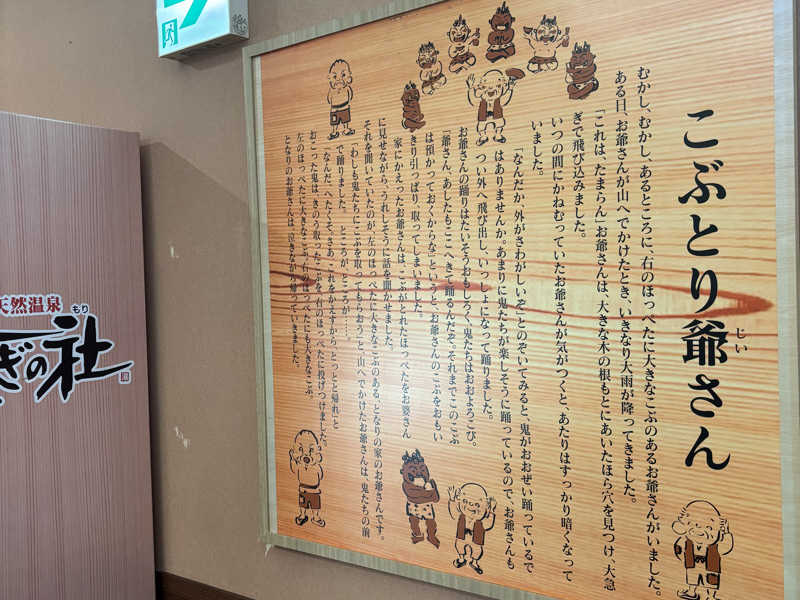 こぶとり爺さん
じい
むかし、むかし、あるところに、右のほっぺたに大きなこぶのあるお爺さんがいました。
ある日、お爺さんが山へでかけたとき、いきなり大雨が降ってきました。
「これは、たまらん」お爺さんは、大きな木の根もとにあいたほら穴を見つけ、大急
ぎで飛び込みました。
いつの間にかねむっていたお爺さんが気がつくと、あたりはすっかり暗くなって
いました。
「なんだか、外がさわがしいぞ」とのぞいてみると、鬼がおおぜい踊っているで
はありませんか。あまりに鬼たちが楽しそうに踊っているので、お爺さんも
つい外へ飛び出し、いっしょになって踊りました。
お爺さんの踊りはたいそうおもしろく、鬼たちはおおよろこび。
「爺さん、あしたもここへきて踊るんだぞ。それまでこのこぶ
は預かっておくからな」というと、お爺さんのこぶをおもい
きり引っぱり、取ってしまいました。
家にかえったお爺さんは、こぶがとれたほっぺたをお婆さん
に見せながら、うれしそうに話を聞かせました。
それを聞いていたのが、左のほっぺたに大きなこぶのある、となりの家のお爺さんです。
「わしも鬼たちにこぶを取ってもらおう」と、山へでかけたお爺さんは、鬼たちの前
で踊りました。ところが、ところが……。
「なんだ、へたくそ。さあ、これをかえすから、とっとと帰れ」と
おこった鬼は、きのう取ったこぶを、右のほっぺたに投げつけました。
左のほっぺたに大きなこぶ、右のほっぺたにも大きなこぶ。
となりのお爺さんは、泣きながら帰っていきました。
天然温泉
ぎの社
もり